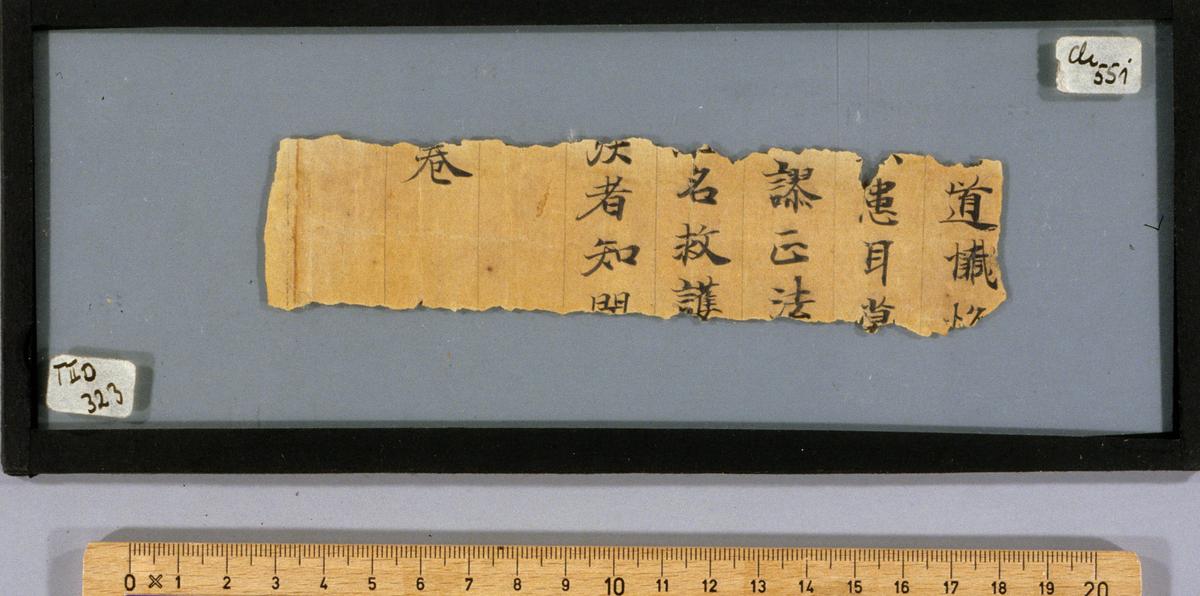 道懺
患耳
謬正法
名救護
者知
卷
Ch 551
TIID
323
0 1 2 3 4 5 6 7 8 9 10 11 12 13 14 15 16 17 18 19 20